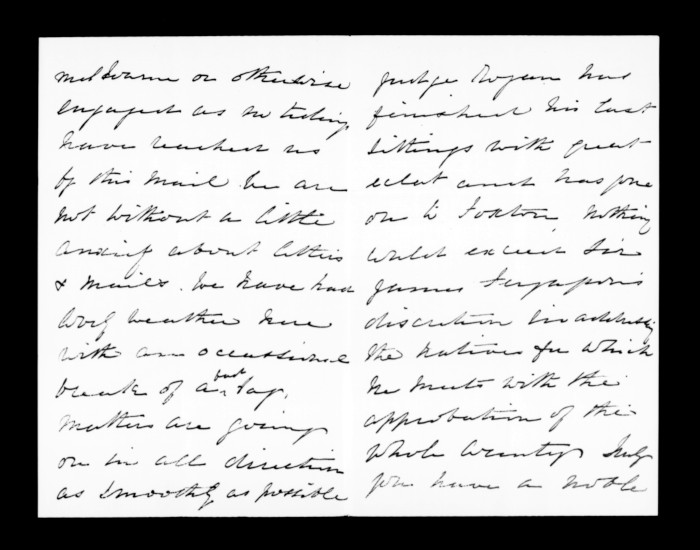 Melbourne or otherwise
engaged as no tidings
have reached us
by this mail. We are
not without a little
anxiety about letters
& mails. We have had
lovely weather here
with an occasional
break of a bad day.
Matters are going
on in all direction
as smoothly as possible
Judge Rogan has
finished his last
sittings with great
eclat and has gone
on to Foxton, nothing
could exceed Sir
James Fergusson's
discretion in addressing
the Natives for which
he meets with the
approbation of the
whole County. Truly
you have a noble